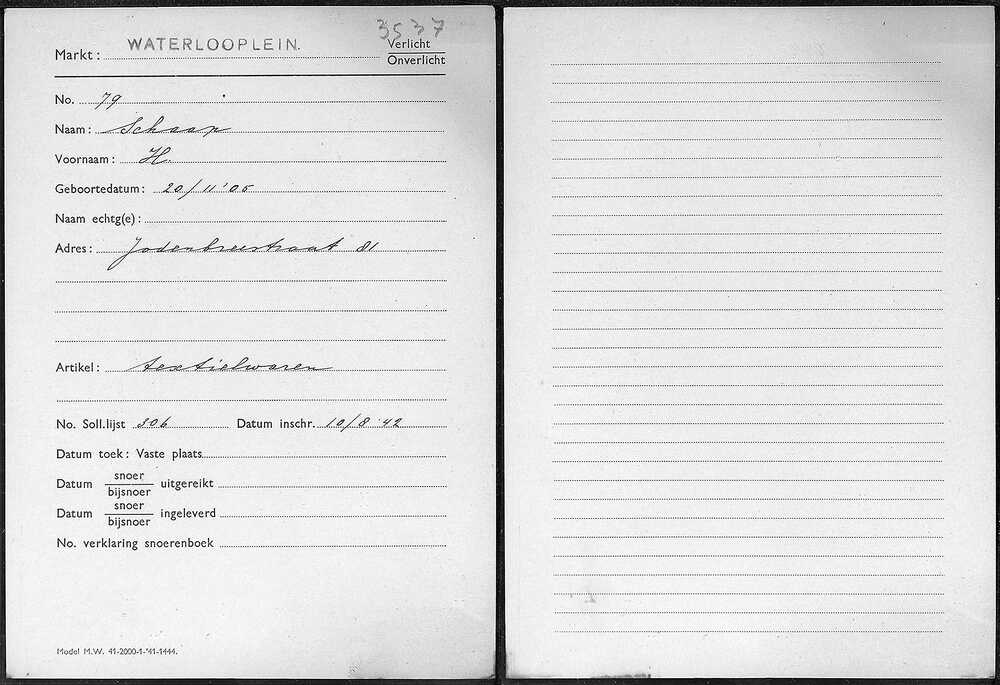 3537
Markt: WATERLOOPLEIN. Verlicht
Onverlicht
No. 79
Naam: Schaap
Voornaam: H.
Geboortedatum: 20/11 '05
Naam echtg(e):
Adres: Jodenbreestraat 81
Artikel: textielwaren
No. Soll.lijst 306 Datum inschr. 10/8 '42
Datum toek: Vaste plaats
Datum snoer
bijsnoer uitgereikt
Datum snoer
bijsnoer ingeleverd
No. verklaring snoerenboek
Model M.W. 41-2000-1-'41-1444.